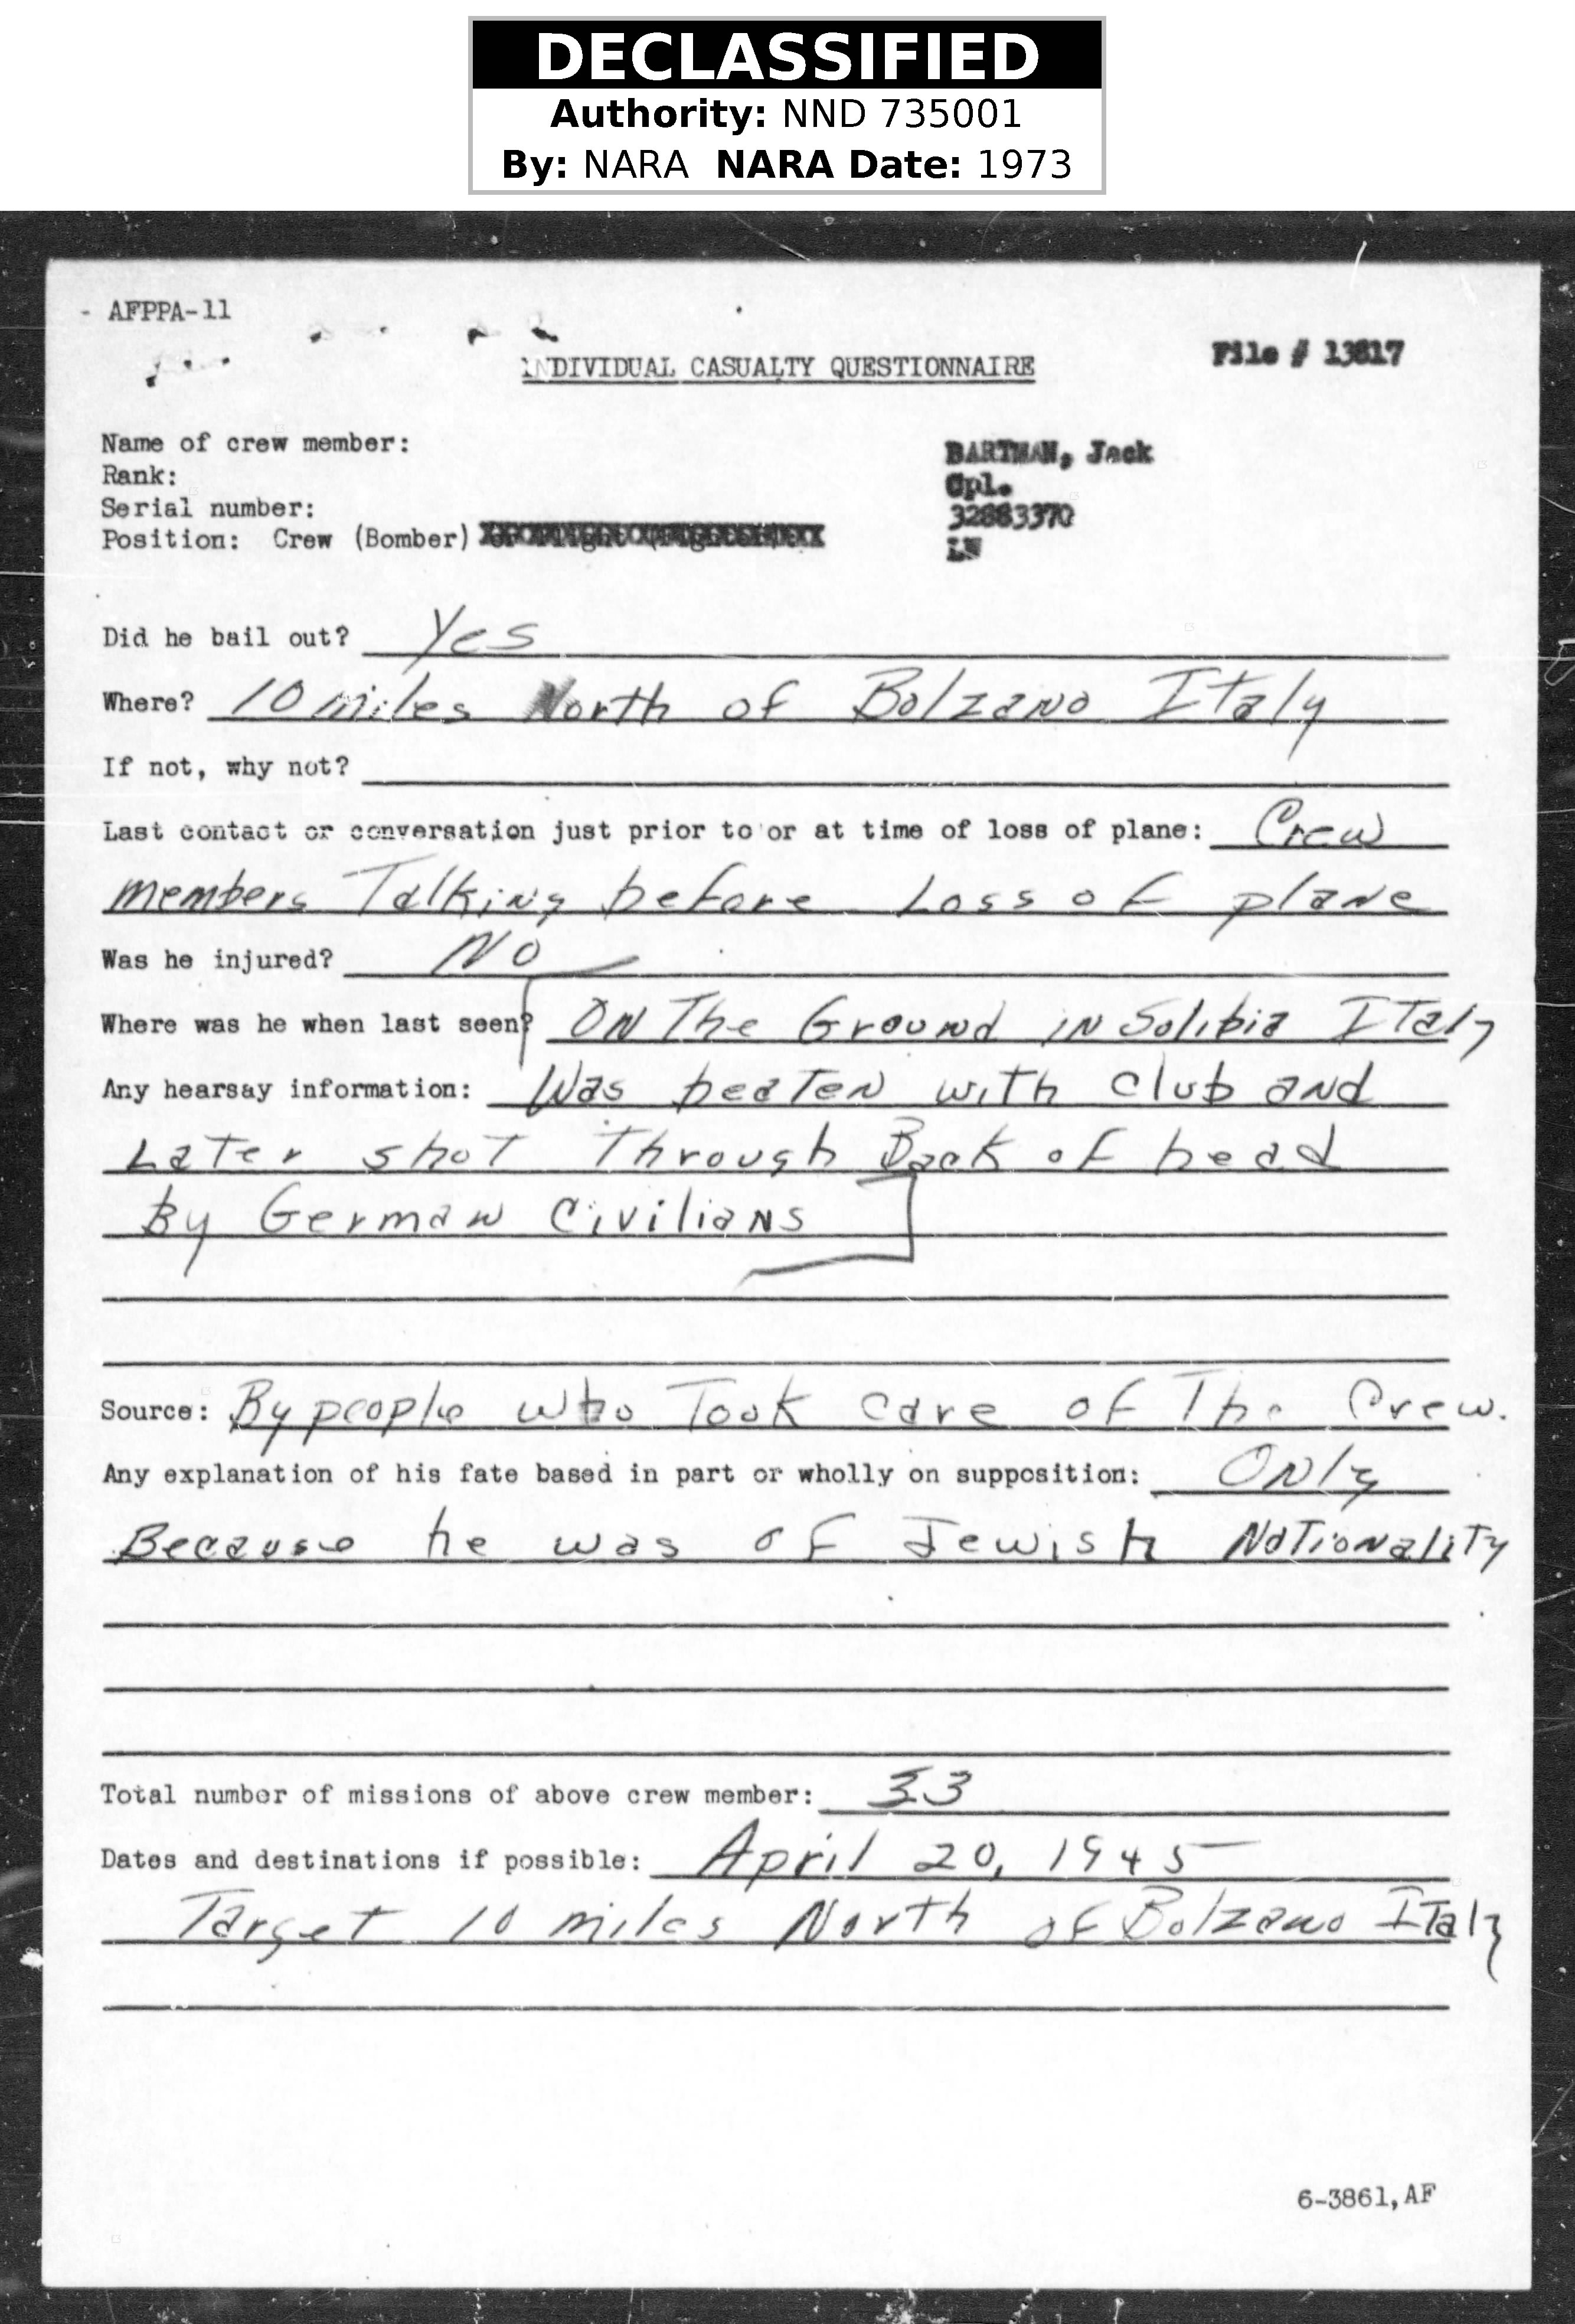 DECLASSIFIED
Authority: NND 735001
By: NARA NARA Date: 1973
- AFPPA-11
File # 13817
INDIVIDUAL CASUALTY QUESTIONNAIRE
Name of crew member: BARTMAN, Jack
Rank: Cpl.
Serial number: 32883370
Position: Crew (Bomber)
Did he bail out? Yes
Where? 10 miles North of Bolzano Italy
If not, why not?
Last contact or conversation just prior to or at time of loss of plane: Crew
members Talking before Loss of plane
Was he injured? NO
Where was he when last seen? ON The Ground iN Solibia ITaly
Any hearsay information: Was beaTeN with club and
LaTer shoT Through Back of head
By German CiviliaNs
Source: By people who Took care of The Crew.
Any explanation of his fate based in part or wholly on supposition: ONly
Because he was of Jewish NaTioNaliTy
Total number of missions of above crew member: 33
Dates and destinations if possible: April 20, 1945
Target 10 miles North of Bolzano ITaly
6-3861,AF